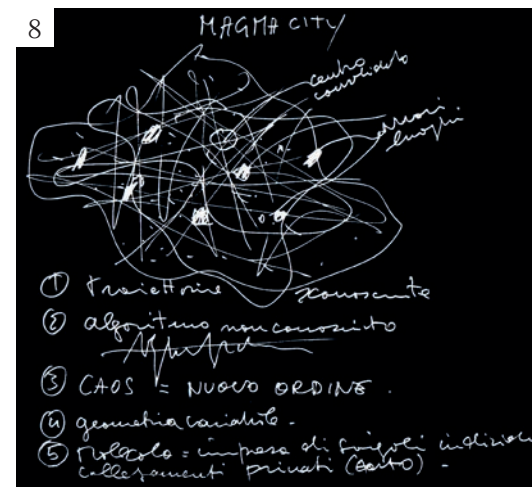 8
MAGMA CITY
centro
consolidato
nuovi
luoghi
① traiettorie sconosciute
② algoritmo non conosciuto
③ CAOS = NUOVO ORDINE.
④ geometria variabile.
⑤ molecola = impresa di singoli individui
collegamenti privati (auto) -